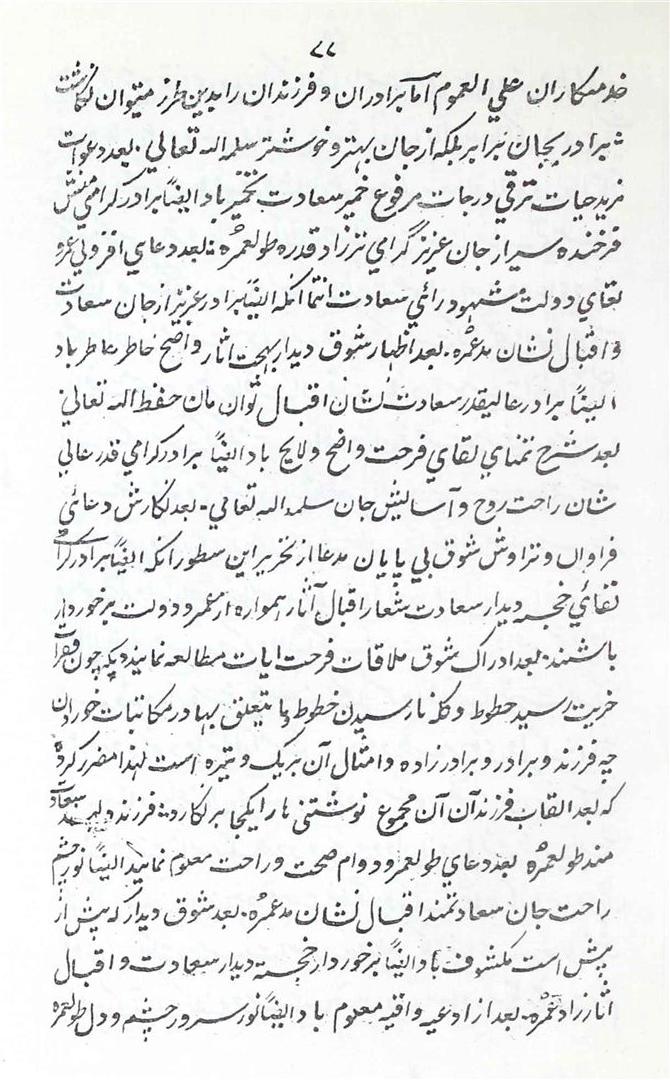 ۷۷
خدمتکاران علي العموم اما برادران و فرزندان را بدین طرز میتوان نگاشت
برادر بجان برابر بلکه از جان بهتر و خوشتر سلمه الله تعالي. بعد دعوات
مزید حیات ترقي درجات مرفوع ضمیر سعادت تخمیر باد ایضاً برادر گرامي منش
فرخنده سیر از جان عزیز گرامي تر زاد قدره طولعمره. بعد دعاي افزوني عمر و
بقاي دولت مشهود رائي سعادت انتما آنکه ایضاً برادر عزیز از جان سعادت
و اقبال نشان مدعمره. بعد اظهار شوق دیدار بهجت اثار واضح خاطر عاطر باد
ایضاً برادر عالیقدر سعادت نشان اقبال توان مان حفظه الله تعالي
بعد شرح تمناي لقاي فرحت واضح و لایح باد ایضاً برادر گرامي قدر عالي
شان راحت روح و آسایش جان سلمه الله تعالي. بعد نگارش دعائي
فراوان و تراوش شوق بي پایان مدعا از تحریر این سطور انکه ایضاً برادر گرامي
لقائي خجسته دیدار سعادت شعار اقبال آثار همواره از عمر و دولت برخوردار
باشند. بعد ادراک شوق ملاقات فرحت ایات مطالعه نمایند و یکه چون فقرات
خیریت رسید خطوط و گله نارسیدن خطوط و ما یتعلق بها در مکاتبات خوردان
چه فرزند و برادر و برادرزاده و امثال آن بریک وتیره است لهذا مقرر کرده
که بعد القاب فرزندان آن مجموع نوشتنی ها را یکجا برنگارد. فرزند دلبند سعادت
مند طولعمره بعد دعاي طولعمر و دوام صحت و راحت معلوم نمایند ایضاً نور چشم
راحت جان سعادتمند اقبال نشان مدعمره. بعد شوق دیدار که بیش از
بیش است مکشوف باد ایضاً برخوردار خجسته دیدار سعادت و اقبال
اثار زاد عمره. بعد از ادعیه وافیه معلوم باد ایضاً نور سرور چشم و دل طولعمره